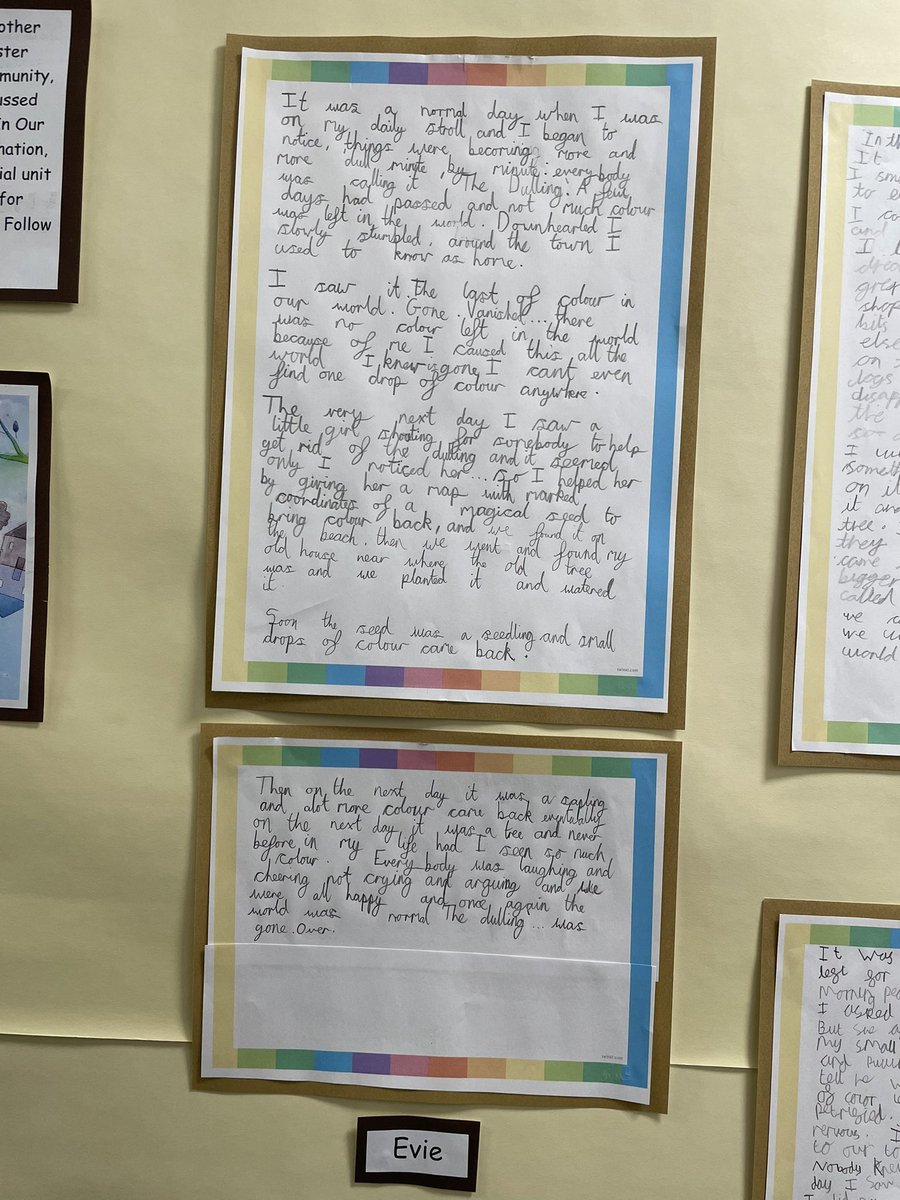 other
ster
munity,
ussed
in Our
nation,
ial unit
for
Follow
It was a normal day when I was
on my daily stroll and I began to
notice, things were becoming more and
more dull minute by minute. everybody
was calling it The Dulling. A few
days had passed and not much colour
was left in the world. Downhearted I
slowly stumbled, around the town I
used to know as home.
I saw it. The last of colour in
our world. Gone. Vanished... there
was no colour left in the world
because of me I caused this all the
world I knew is gone I cant even
find one drop of colour anywhere.
The very next day I saw a
little girl shouting for somebody to help
get rid of the dulling and it seemed
only I noticed her... So I helped her
by giving her a map with marked
coordinates of a magical seed to
bring colour back, and we found it on
the beach. then we went and found my
old house near where the old tree
was and we planted it and watered
it.
Soon the seed was a seedling and small
drops of colour came back.
twinkl.com
Then on the next day it was a sapling
and alot more colour came back eventually
on the next day it was a tree and never
before in my life had I seen so much
colour. Everybody was laughing and
cheering not crying and arguing and we
were all happy and once again the
world was normal The dulling... was
gone. Over.
twinkl.com
Evie
In th
It
I sm
to e
I co
and
I
drea
grey
shop
bits
else
on
dogs
disapp
the
so
I w
someth
on it
it and
tree.
they
came
bigger
called
we c
we w
world
It was
left for
Morning pe
I asked
But she a
My small
and
tell he w
of color
petrified.
nervous. I
to our to
Nobody Knew
day I saw